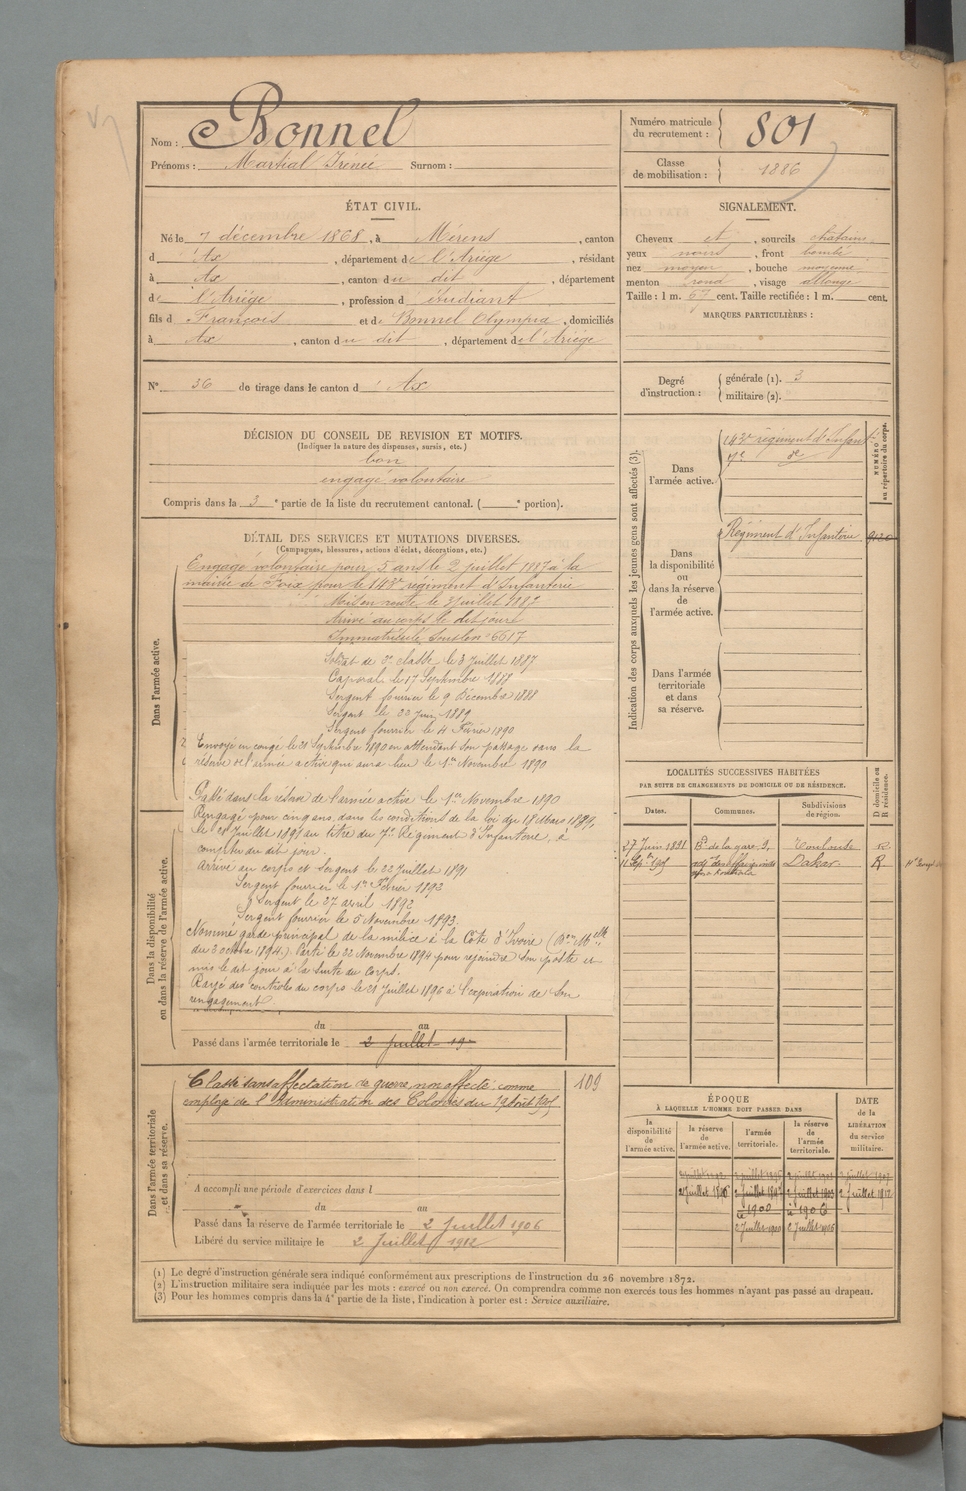 Nom : Bonnel
Prénoms : Martial Irénée Surnom :
Numéro matricule du recrutement : 801
Classe de mobilisation : 1886
ÉTAT CIVIL.
Né le 7 décembre 1868, à Mérens, canton
d'Ax, département de l'Ariège, résidant
à Ax, canton du dit, département
de l'Ariège, profession d'étudiant
fils de François et de Bonnel Olympia, domiciliés
à Ax, canton du dit, département de l'Ariège
SIGNALEMENT.
Cheveux et, sourcils châtains,
yeux noirs, front bombé
nez moyen, bouche moyenne,
menton rond, visage allongé
Taille : 1 m. 67 cent. Taille rectifiée : 1 m. cent.
MARQUES PARTICULIÈRES :
N° 36 de tirage dans le canton d'Ax
Degré d'instruction : générale (1). 3
militaire (2).
DÉCISION DU CONSEIL DE REVISION ET MOTIFS.
(Indiquer la nature des dispenses, sursis, etc.)
bon
engagé volontaire
Compris dans la 3e partie de la liste du recrutement cantonal. ( e portion).
DÉTAIL DES SERVICES ET MUTATIONS DIVERSES.
(Campagnes, blessures, actions d'éclat, décorations, etc.)
Dans l'armée active.
Engagé volontaire pour 5 ans le 2 juillet 1887 à la
mairie de Foix pour le 143e régiment d'Infanterie
Mis en route le 3 juillet 1887
Arrivé au corps le dit jour
Immatriculé sous le n° 6617
Soldat de 2e classe le 3 juillet 1887
Caporal le 17 Septembre 1888
Sergent fourrier le 9 Décembre 1888
Sergent le 22 Juin 1889
Sergent fourrier le 4 Février 1890
Envoyé en congé le 21 Septembre 1890 en attendant son passage dans la
réserve de l'armée active qui aura lieu le 1er Novembre 1890
Passé dans la réserve de l'armée active le 1er Novembre 1890
Rengagé pour cinq ans dans les conditions de la loi du 18 Mars 1889,
le 21 Juillet 1891 au titre du 7e Régiment d'Infanterie, à
compter du dit jour.
Arrivé au corps et Sergent le 22 juillet 1891
Sergent fourrier le 1er Février 1892
Sergent le 27 avril 1892
Sergent fourrier le 5 Novembre 1893
Nommé garde principal de la milice à la Côte d'Ivoire
du 3 octobre 1894.) Parti le 22 Novembre 1894 pour rejoindre son poste et
mis le dit jour à la suite du corps.
Rayé des contrôles du corps le 21 Juillet 1896 à l'expiration de son
rengagement
Dans la disponibilité ou dans la réserve de l'armée active.
du au
Passé dans l'armée territoriale le 2 Juillet 19
Dans l'armée territoriale et dans sa réserve.
Classé sans affectation de guerre, non affecté comme
employé de l'Administration des Colonies du 19 août 1905
109
A accompli une période d'exercices dans l
du au
Passé dans la réserve de l'armée territoriale le 2 Juillet 1906
Libéré du service militaire le 2 Juillet 1912
Indication des corps auxquels les jeunes gens sont affectés (3).
NUMÉRO au répertoire du corps.
Dans l'armée active.
143e régiment d'Infant
7e do
Dans la disponibilité ou dans la réserve de l'armée active.
Régiment d'Infanterie
Dans l'armée territoriale et dans sa réserve.
LOCALITÉS SUCCESSIVES HABITÉES
PAR SUITE DE CHANGEMENTS DE DOMICILE OU DE RÉSIDENCE.
Dates. Communes. Subdivisions de région. D domicile ou R résidence.
27 Juin 1891 Bd de la gare 9, Toulouse R
11 Sepbre 1905 Dakar R
ÉPOQUE
À LAQUELLE L'HOMME DOIT PASSER DANS
la disponibilité de l'armée active. la réserve de l'armée active. l'armée territoriale. la réserve de l'armée territoriale. DATE de la LIBÉRATION du service militaire.
2 juillet 1912
1900 1906
2 Juillet 1900 2 Juillet 1906
(1) Le degré d'instruction générale sera indiqué conformément aux prescriptions de l'instruction du 26 novembre 1872.
(2) L'instruction militaire sera indiquée par les mots : exercé ou non exercé. On comprendra comme non exercés tous les hommes n'ayant pas passé au drapeau.
(3) Pour les hommes compris dans la 4e partie de la liste, l'indication à porter est : Service auxiliaire.